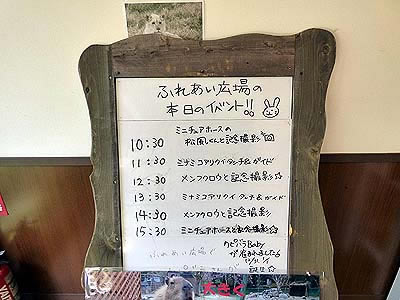 ふれあい広場の
本日のイベント!!
10:30 ミニチュアホースの
松風くんと記念撮影
11:30 ミナミコアリクイタッチ&ガイド
12:30 メンフクロウと記念撮影☆
13:30 ミナミコアリクイタッチ&ガイド
14:30 メンフクロウと記念撮影
15:30 ミニチュアホースと記念撮影☆
ふれあい広場で
カピバラBaby
が産まれました
誕生☆
大きく